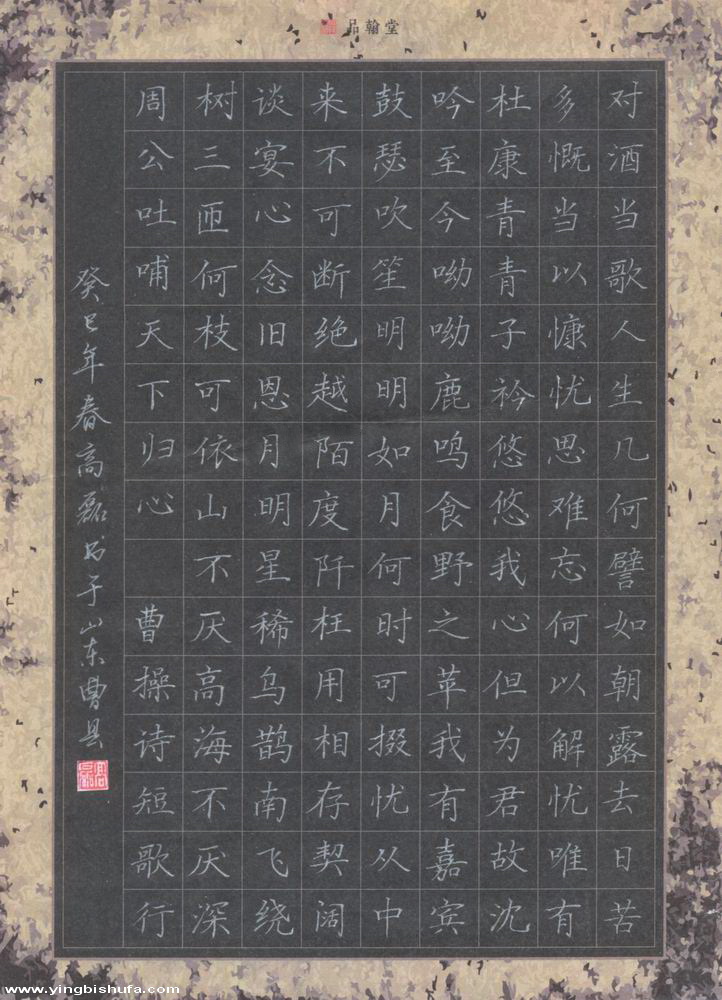 品翰堂
对酒当歌人生几何譬如朝露去日苦
多慨当以慷忧思难忘何以解忧唯有
杜康青青子衿悠悠我心但为君故沈
吟至今呦呦鹿鸣食野之苹我有嘉宾
鼓瑟吹笙明明如月何时可掇忧从中
来不可断绝越陌度阡枉用相存契阔
谈宴心念旧恩月明星稀乌鹊南飞绕
树三匝何枝可依山不厌高海不厌深
周公吐哺天下归心 曹操诗短歌行
癸巳年春高磊书于山东曹县
www.yingbishufa.com